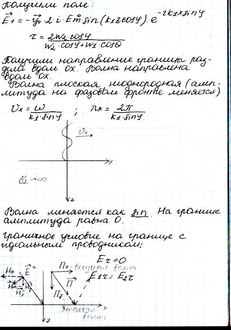 Получили поле:
E₊ = -y₀ 2 i Em sin(k₁z cosψ) · e^(-ik₁x sinψ)
τ = 2W₂ cosψ / (W₂ cosψ + W₁ cosθ)
Получили направление границы раз-
дела вдоль ox. Волна направлена
вдоль ox.
Волна плоская, неоднородная (амп-
литуда на фазовом фронте меняется)
Vx = ω / (k₁ sinψ) ; λx = 2π / (k₁ sinψ)
Vx
x
z
Волна меняется как sin. На границе
амплитуда равна 0.
граничное условие на границе с
идеальным проводником:
Eτ = 0
E₁τ = E₂τ
E
П
x
z